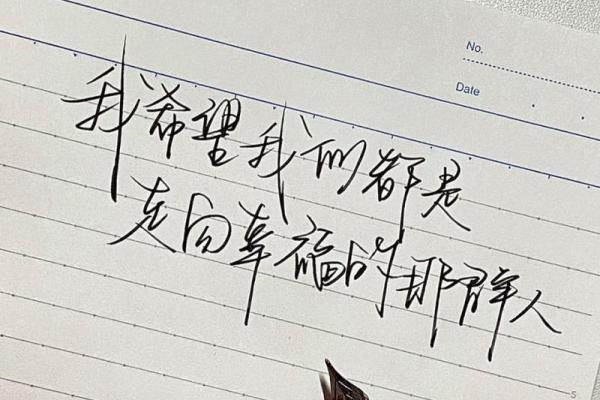 No.
Date
我希望我们都是
走向幸福的那群人
5